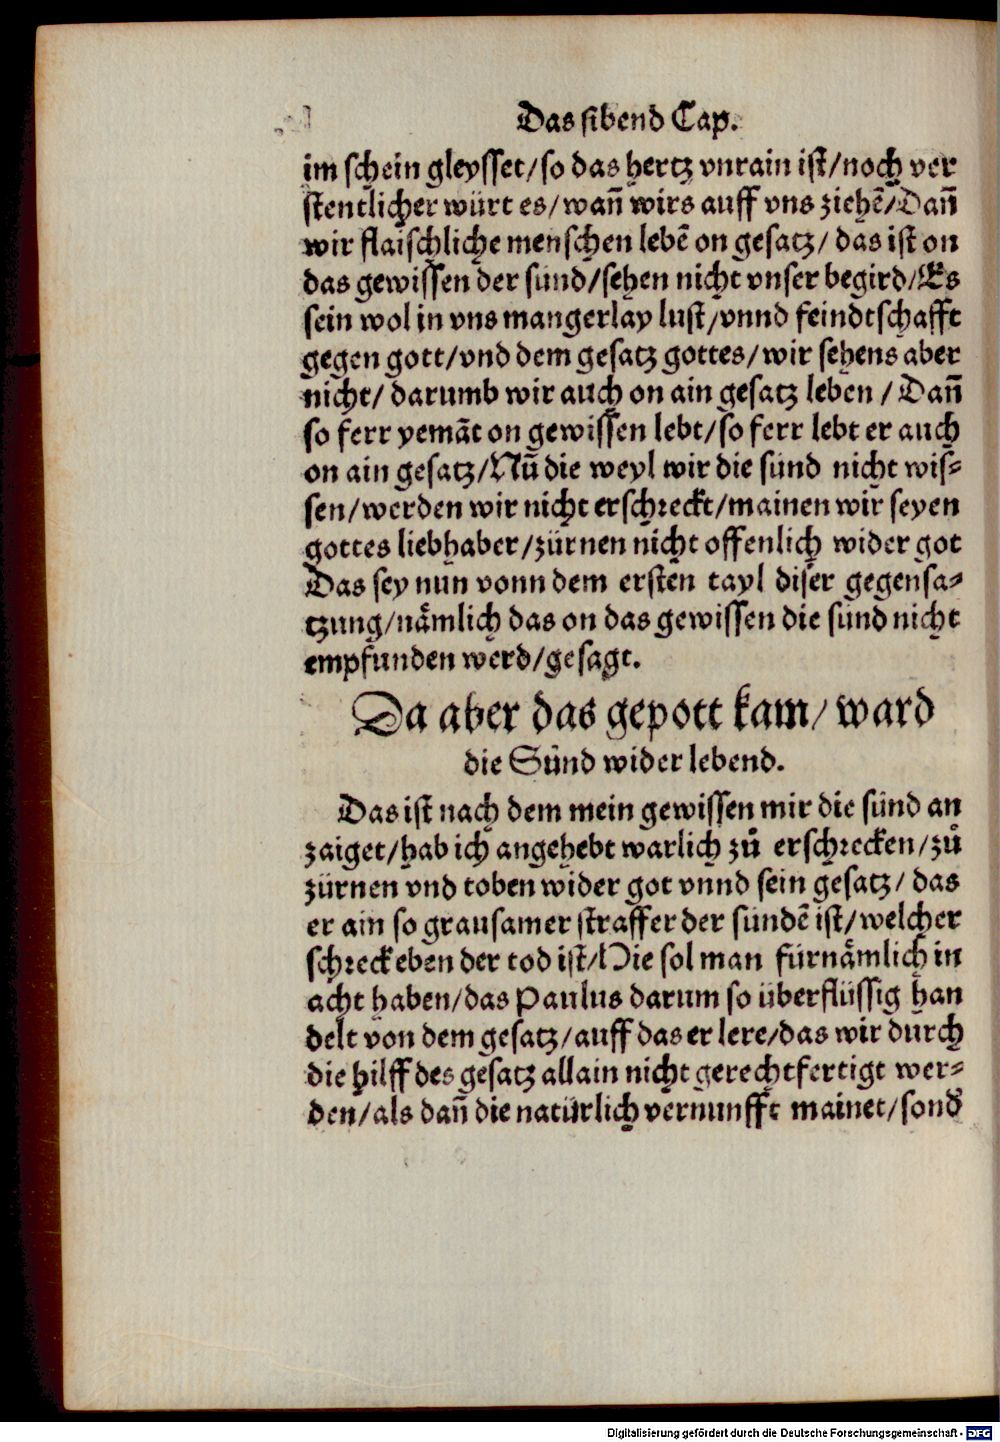 Das sibend Cap.
im schein gleysset/so das hertz vnrain ist/noch ver
stentlicher würt es/wañ wirs auff vns ziehẽ/Dañ
wir flaischliche menschen lebẽ on gesatz/ das ist on
das gewissen der sünd/sehen nicht vnser begird/Es
sein wol in vns mangerlay lust/vnnd feindtschafft
gegen gott/vnd dem gesatz gottes/wir sehens aber
nicht/ darumb wir auch on ain gesatz leben / Dañ
so ferr yemãt on gewissen lebt/so ferr lebt er auch
on ain gesatz/Nũ die weyl wir die sünd nicht wis-
sen/werden wir nicht erschreckt/mainen wir seyen
gottes liebhaber/zürnen nicht offenlich wider got
Das sey nun vonn dem ersten tayl diser gegensa-
tzung/nämlich das on das gewissen die sünd nicht
empfunden werd/gesagt.
Da aber das gepott kam/ ward
die Sünd wider lebend.
Das ist nach dem mein gewissen mir die sünd an
zaiget/hab ich angehebt warlich zů erschrecken/zů
zürnen vnd toben wider got vnnd sein gesatz/ das
er ain so grausamer straffer der sündẽ ist/welcher
schreck eben der tod ist/Hie sol man fürnämlich in
acht haben/das Paulus darum so überflüssig han
delt von dem gesatz/auff das er lere/das wir durch
die hilff des gesatz allain nicht gerechtfertigt wer-
den/als dañ die natürlich vernunfft mainet/sond̾
Digitalisierung gefördert durch die Deutsche Forschungsgemeinschaft - DFG